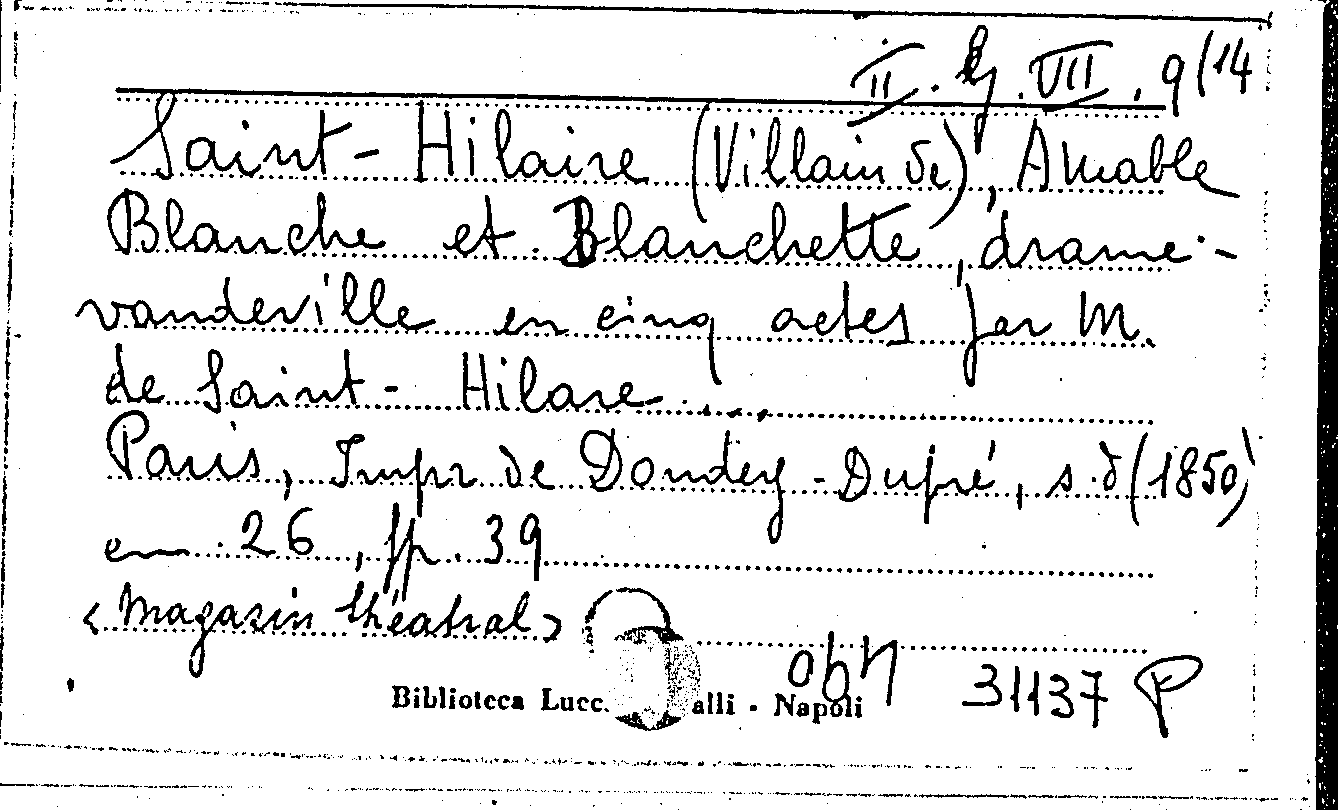 II. G. VII. 9(14
Saint-Hilaire (Villain de), Amable
Blanche et Blanchette, drame-
vaudeville en cinq actes par M.
de Saint-Hilare...
Paris, Impr de Dondey-Dupré, s.d(1850)
cm. 26, pp. 39
<Magasin théatral>
Biblioteca Lucc. alli - Napoli
31137 P